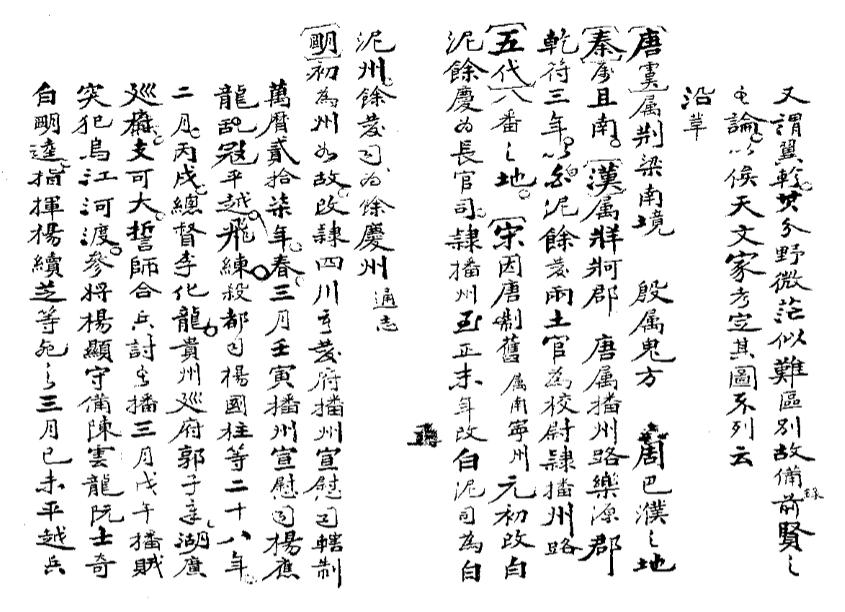 又謂翼軫其分野微茫似難區別故備錄前賢之
論以俟天文家考定其圖系列云
沿革
唐虞属荆梁南境 殷属鬼方 周巴濮之地
秦為且南漢属牂牁郡 唐属播州路樂源郡
乾符三年以餘泥餘慶兩土官為校尉隷播州路
五代八番之地宋因唐制舊属南寧州元初改白
泥餘慶為長官司隷播州至正末年改白泥司為白
泥州餘慶司為餘慶州 通志
明初為州如故改隷四川重慶府播州宣慰司轄制
萬曆貳拾柒年春三月壬寅播州宣慰司楊應
龍乱寇平越飛練殺都司楊國柱等二十八年
二月丙戌總督李化龍貴州廵府郭子章湖廣
廵撫支可大誓師合兵討播三月戊午播賊
突犯烏江河渡參將楊顯守備陳雲龍阮士奇
白明逵指揮楊續芝等死之三月已未平越兵